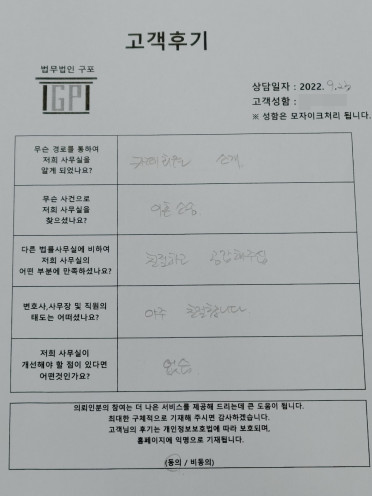 고객후기
법무법인 구포
GP
상담일자 : 2022. 9. 23
고객성함 :
※ 성함은 모자이크처리 됩니다.
무슨 경로를 통하여
저희 사무실을
알게 되었나요?
소개
무슨 사건으로
저희 사무실을
찾으셨나요?
이혼소송
다른 법률사무실에 비하여
저희 사무실의
어떤 부분에 만족하셨나요?
친절하고 공감해주심
변호사,사무장 및 직원의
태도는 어떠셨나요?
아주 친절합니다
저희 사무실이
개선해야 할 점이 있다면
어떤것인가요?
없음
의뢰인분의 참여는 더 나은 서비스를 제공해 드리는데 큰 도움이 됩니다.
최대한 구체적으로 기재해 주시면 감사하겠습니다.
고객님의 후기는 개인정보보호법에 따라 보호되며,
홈페이지에 익명으로 기재됩니다.
(동의 / 비동의)